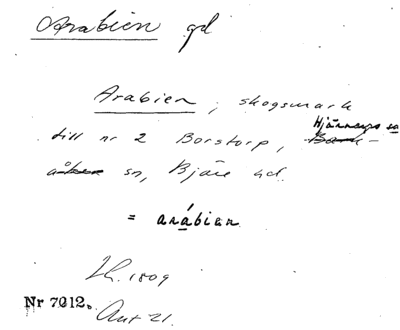 Arabien gd
Arabien, skogsmark
till nr 2 Borstorp, Hjärnarps sn
sn, Bjäre hd.
= arábien
Nr 7012.
Ant 21.